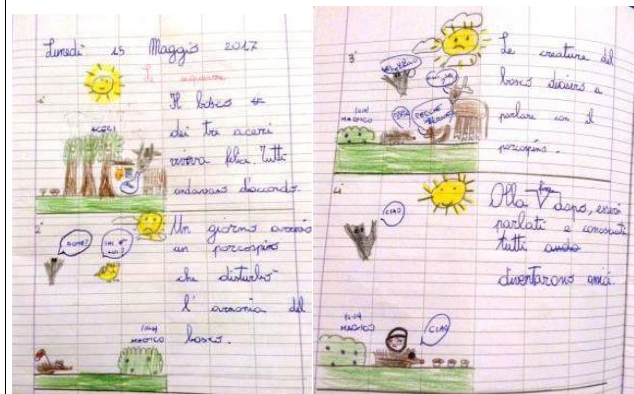 Lunedì 15 Maggio 2017
Le sequenze
1°
Il bosco
dei tre aceri
viveva felice. Tutti
andavano d'accordo.
ACERI
2°
Un giorno arrivò
un porcospino
che disturbò
l'armonia del
bosco.
NOME?
CHI È LUI?
MAGICO
3°
Le creature del
bosco decisero di
parlare con il
porcospino.
MAGICO
4°
Alla fine
dopo, essersi
parlati e conosciuti
tutti
diventarono amici.
CIAO
MAGICO
CIAO